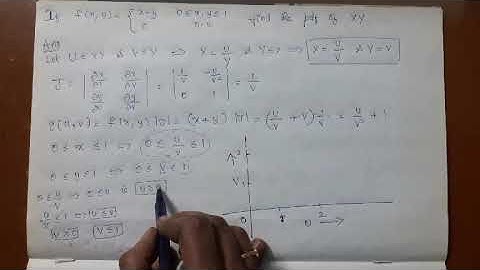 If f(x,y) = { x+y 0 ≤ x,y ≤ 1 find the pdf of XY
Ans
Let U = XY & V = Y ⇒ X = U/V & Y = V ⇒ X = U/V & Y = V
J = | ∂x/∂u ∂x/∂v ; ∂y/∂u ∂y/∂v | = | 1/v -u/v² ; 0 1 | = 1/v
g(u,v) = f(x,y) |J| = (x+y) |J| = (u/v + v) 1/v = u/v² + 1
0 ≤ x ≤ 1 ⇒ 0 ≤ u/v ≤ 1
0 ≤ y ≤ 1 ⇒ 0 ≤ v ≤ 1
0 ≤ u/v ⇒ 0 ≤ u
u/v ≤ 1 ⇒ u ≤ v
v ≤ 1
V
0 1 2